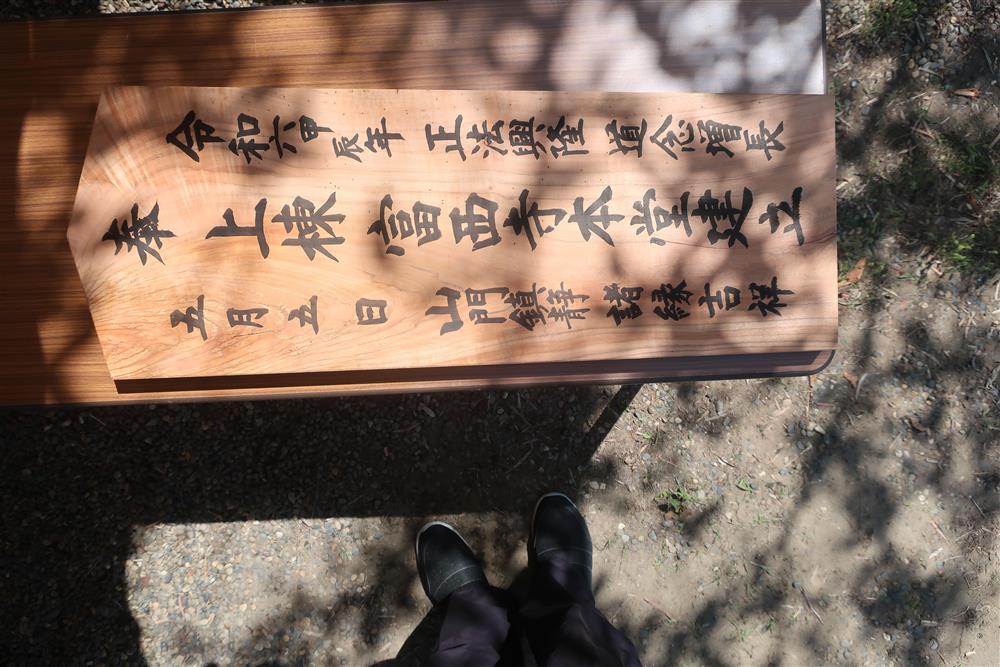 令和六甲辰年 正法興隆 道念増長
奉 上棟 富西寺本堂建立
五月五日 山門鎮静 諸縁吉祥